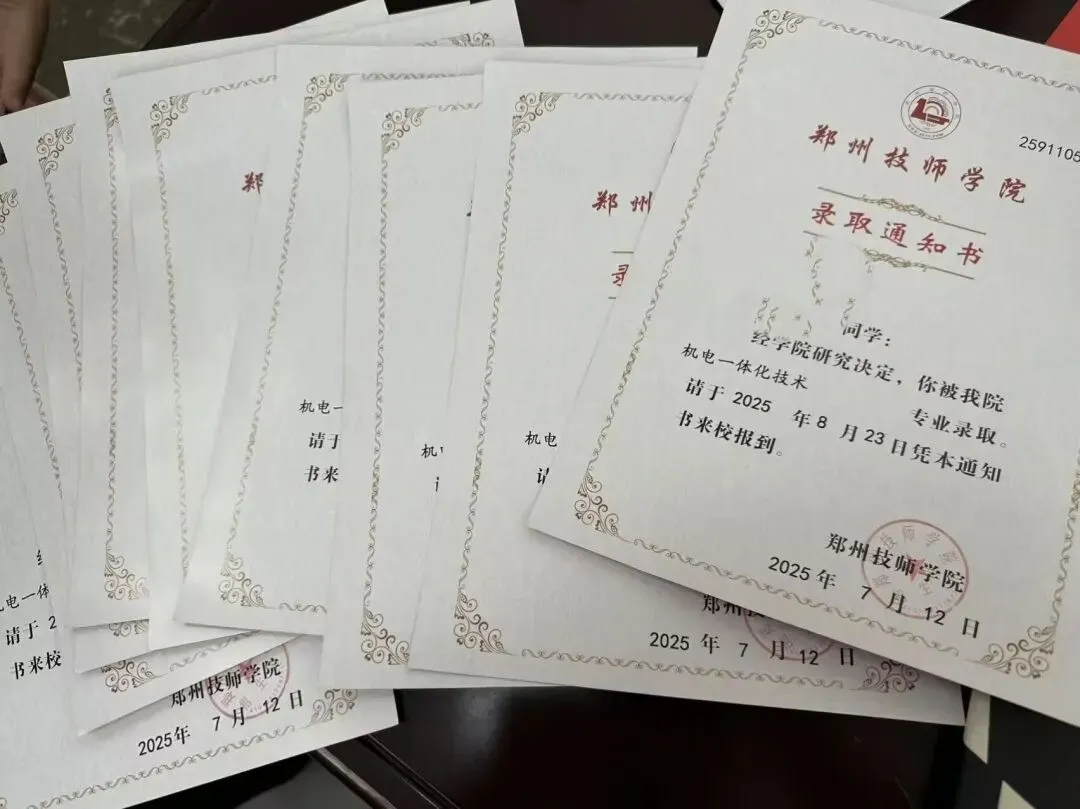 2591105
郑州技师学院
录取通知书
同学：
经学院研究决定，你被我院
机电一体化技术 专业录取。
请于 2025 年 8 月 23 日凭本通知
书来校报到。
郑州技师学院
2025 年 7 月 12 日
郑州
录
机电
郑州技
2025 年 7 月 12 日
机
郑
机电一
请于
书来
机电一体
请于 2
书来校
郑州技师学院
2025 年 7 月 12 日